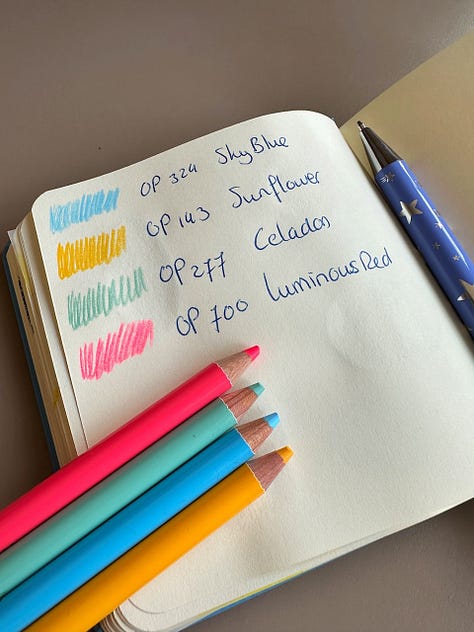 OP 324 SkyBlue
OP 143 Sunflower
OP 277 Celadon
OP 700 Luminous Red